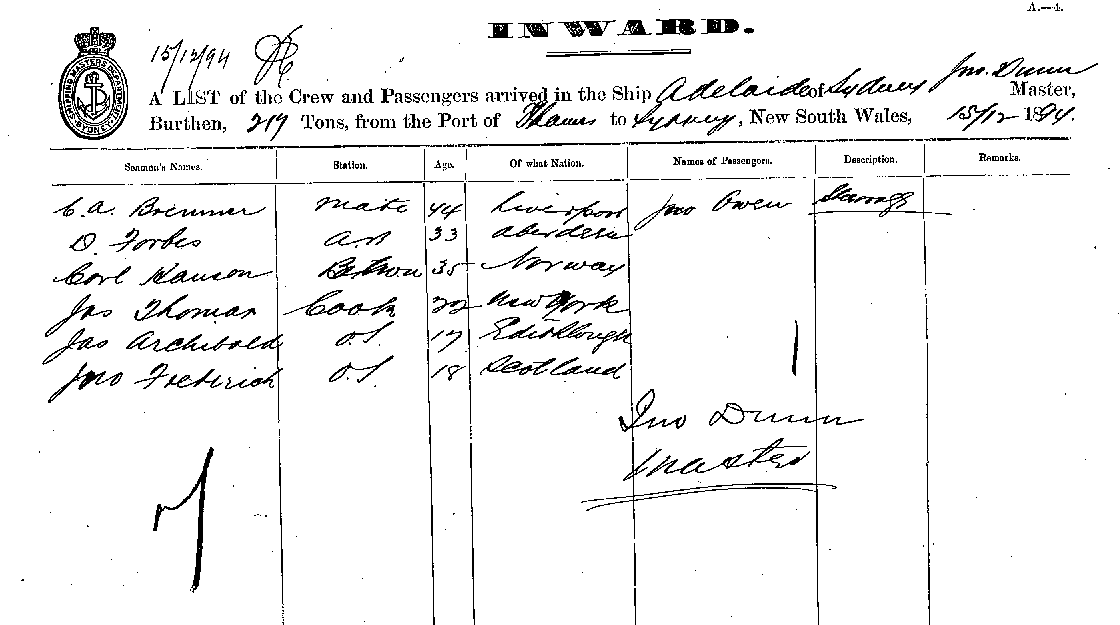 A.—4.
INWARD.
15/12/94
SHIPPING MASTERS DEPARTMENT SYDNEY
A LIST of the Crew and Passengers arrived in the Ship Adelaide of Sydney Jno. Dunn Master,
Burthen, 219 Tons, from the Port of Thames to Sydney, New South Wales, 15/12 1894.
Seamen's Names. Station. Age. Of what Nation. Names of Passengers. Description. Remarks.
C. A. Bremner Mate 44 Liverpool Jno Owen
D. Forbes A.B 33 Aberdeen
Carl Hanson 35 Norway
Jas Thomas Cook 22 New York
Jas Archibald O.S. 17 Edinborough
Jno Frederich O.S. 18 Scotland
1
Jno Dunn
Master
7